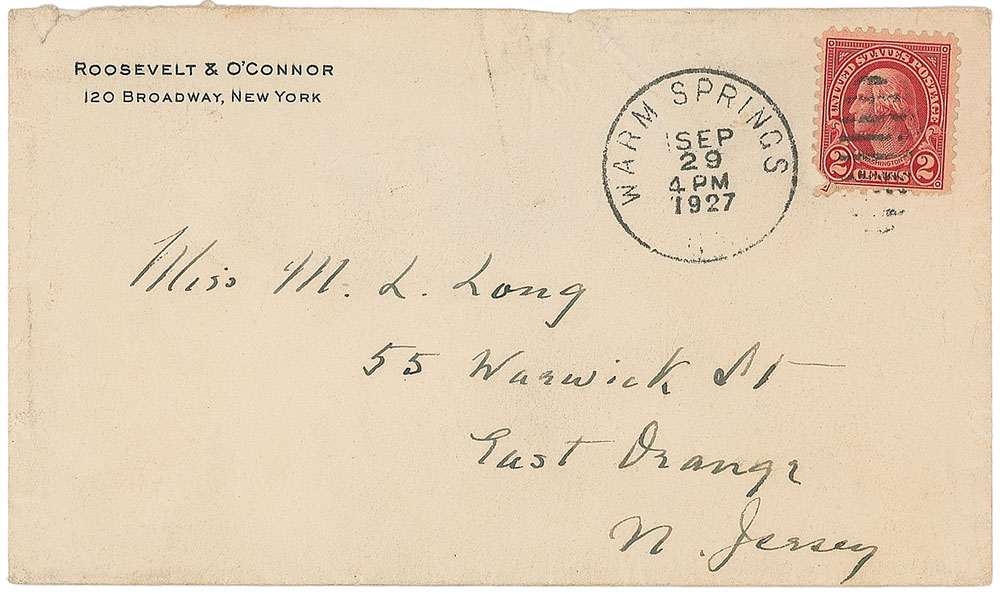 ROOSEVELT & O'CONNOR
120 BROADWAY, NEW YORK
WARM SPRINGS
SEP
29
4 PM
1927
UNITED STATES POSTAGE
WASHINGTON
2 CENTS 2
Miss M. L. Long
55 Warwick St
East Orange
N. Jersey